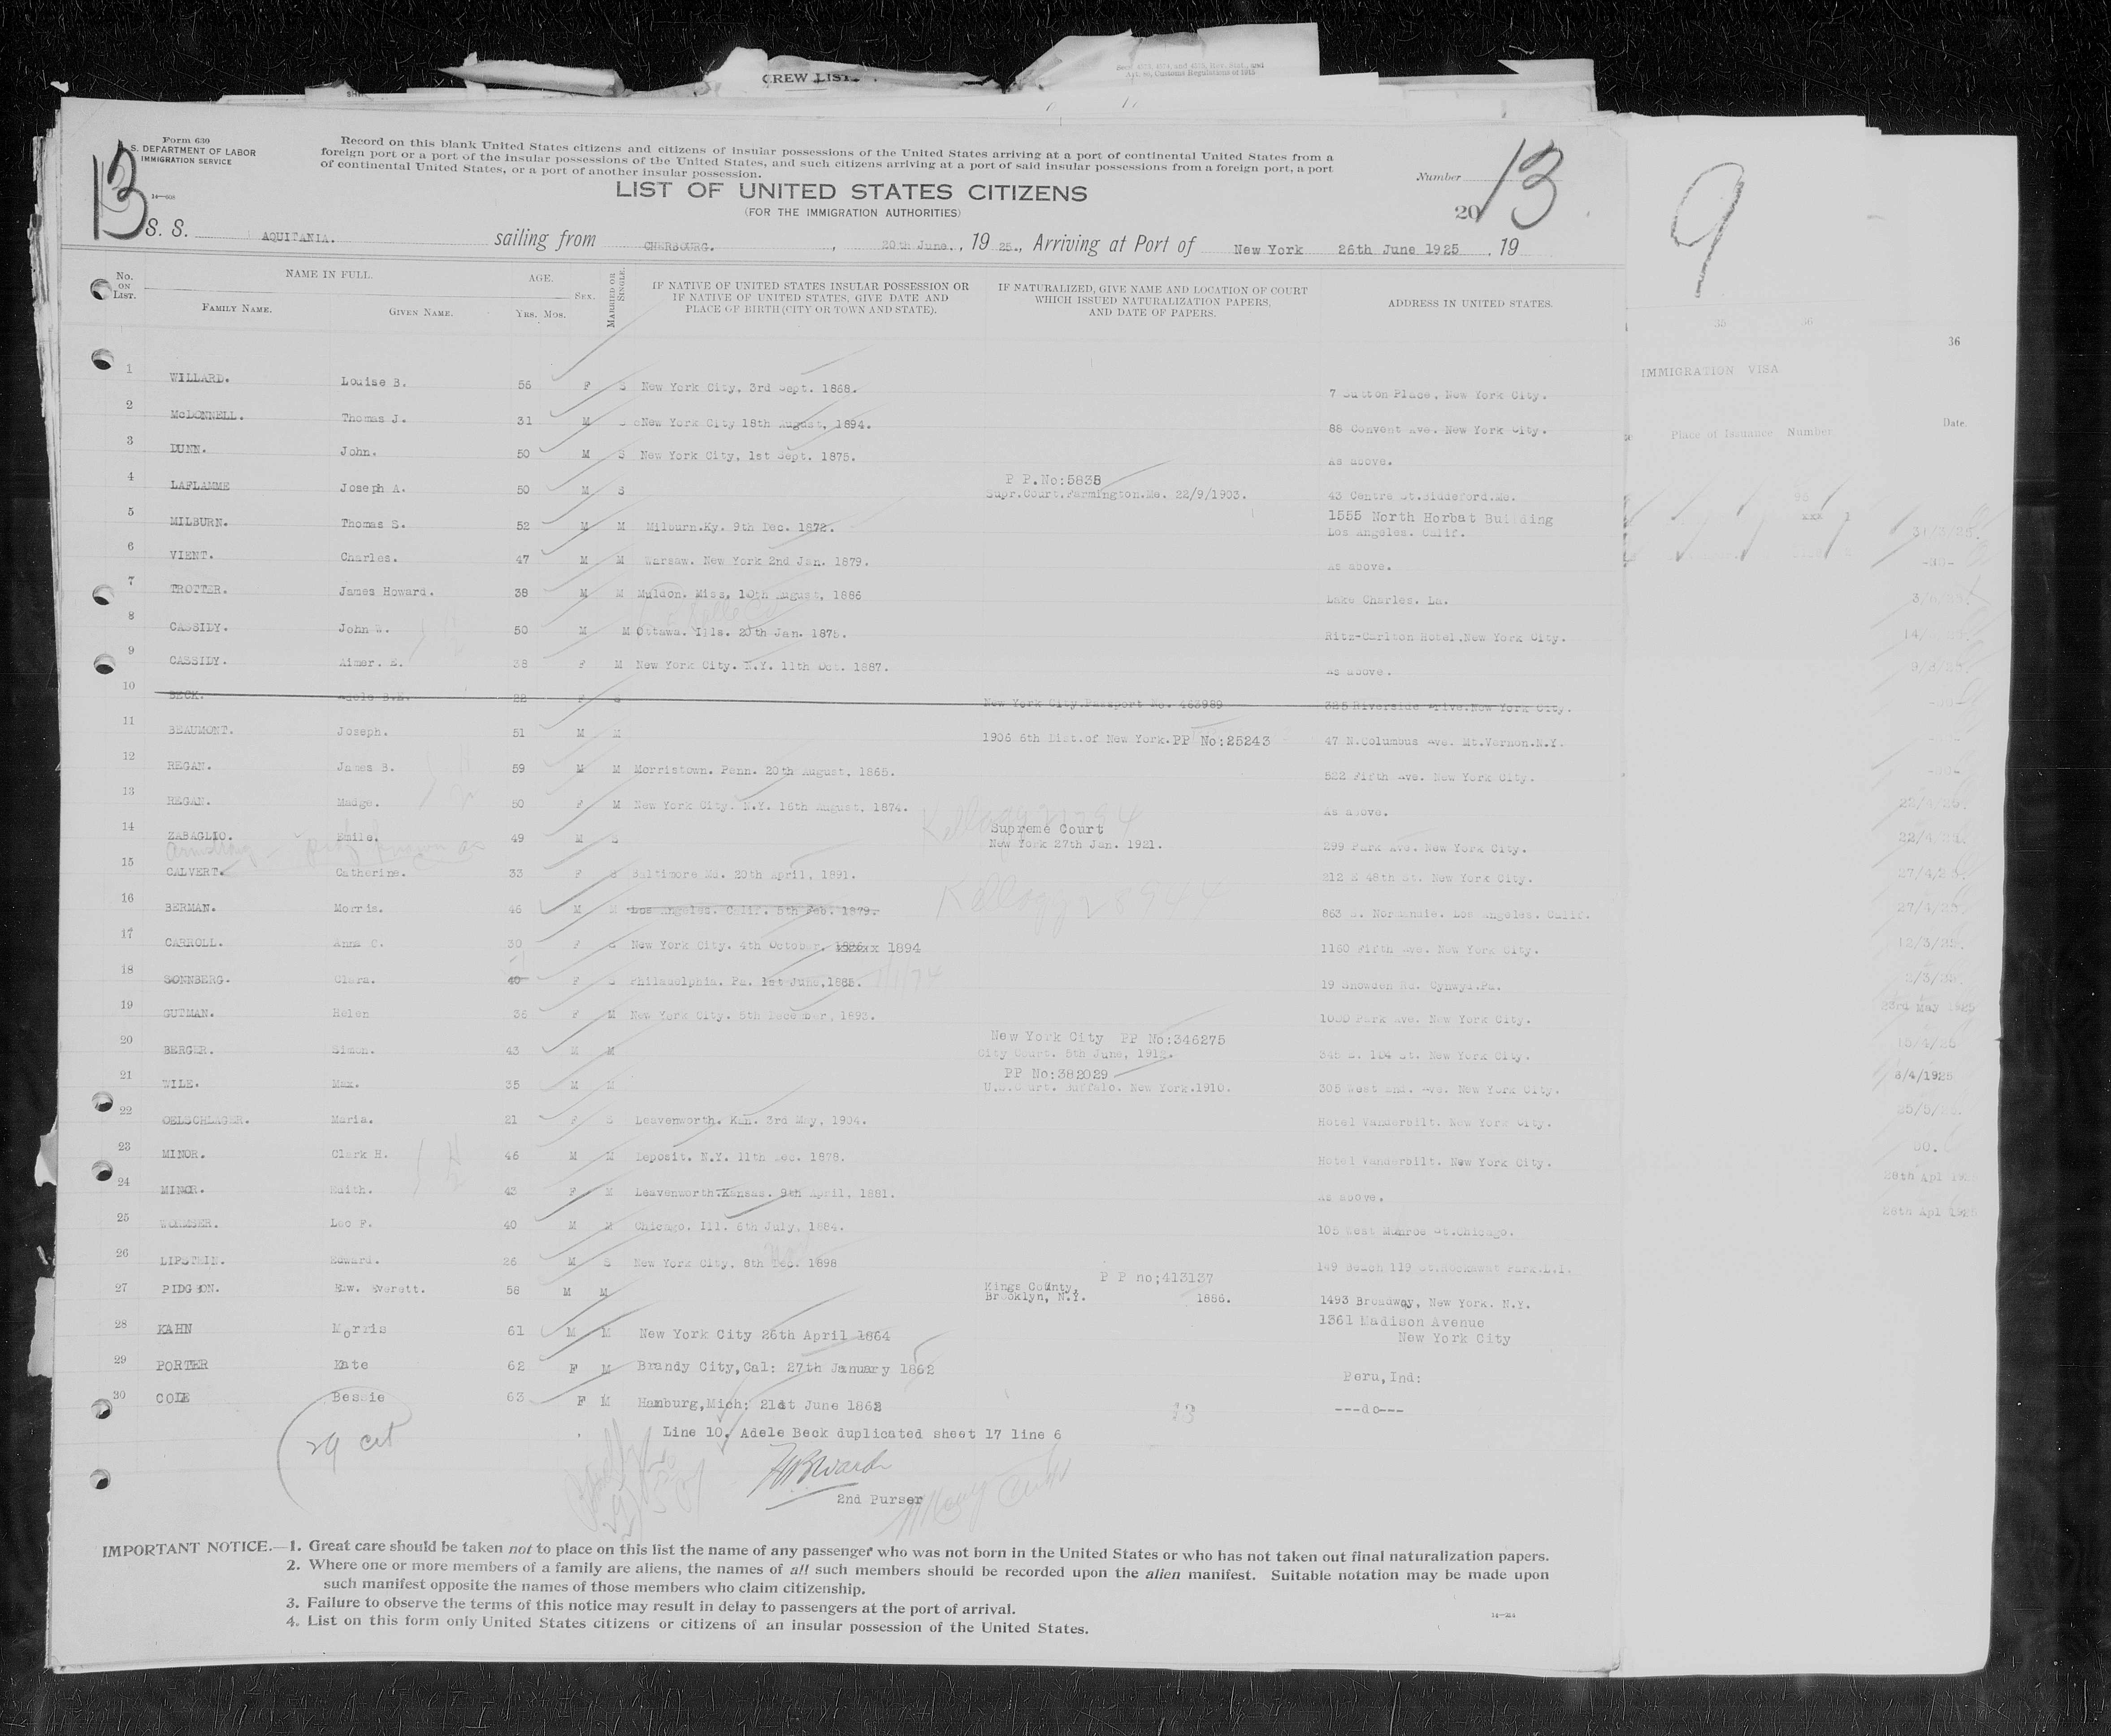 CREW LIST
Secs. 4573, 4574, and 4575, Rev. Stat., and
Art. Customs Regulations of 1915
Form 630
S. DEPARTMENT OF LABOR
IMMIGRATION SERVICE
14—608
13
Record on this blank United States citizens and citizens of insular possessions of the United States arriving at a port of continental United States from a
foreign port or a port of the insular possessions of the United States, and such citizens arriving at a port of said insular possessions from a foreign port, a port
of continental United States, or a port of another insular possession.
LIST OF UNITED STATES CITIZENS
(FOR THE IMMIGRATION AUTHORITIES)
Number
20
13
9
S. S. AQUITANIA. sailing from CHERBOURG. , 20th June. , 19 25., Arriving at Port of New York 26th June 1925 , 19
No. ON LIST. NAME IN FULL. FAMILY NAME. GIVEN NAME. AGE. YRS. MOS. SEX. MARRIED OR SINGLE. IF NATIVE OF UNITED STATES INSULAR POSSESSION OR IF NATIVE OF UNITED STATES, GIVE DATE AND PLACE OF BIRTH (CITY OR TOWN AND STATE). IF NATURALIZED, GIVE NAME AND LOCATION OF COURT WHICH ISSUED NATURALIZATION PAPERS, AND DATE OF PAPERS. ADDRESS IN UNITED STATES.
1 WILLARD. Louise B. 56 F S New York City, 3rd Sept. 1868. 7 Sutton Place, New York City.
2 McDONNELL. Thomas J. 31 M New York City 18th August, 1894. 88 Convent Ave. New York City.
3 DUNN. John. 50 M S New York City, 1st Sept. 1875. As above.
4 LAFLAMME Joseph A. 50 M S P P.No:5838
Supr.Court.Farmington.Me. 22/9/1903. 43 Centre St.Biddeford.Me.
5 MILBURN. Thomas S. 52 M M Milburn.Ky. 9th Dec. 1872. 1555 North Horbat Building
Los Angeles. Calif.
6 VIENT. Charles. 47 M M Warsaw. New York 2nd Jan. 1879. As above.
7 TROTTER. James Howard. 38 M M Muldon. Miss. 10th August, 1886 Lake Charles. La.
8 CASSIDY. John 50 M M Ottawa. Ills. 20th Jan. 1875. Ritz-Carlton Hotel.New York City.
9 CASSIDY. Aimer. E. 38 F M New York City. N.Y. 11th Oct. 1887. As above.
10 BECK. Adele 22 F S New York City.Passport No. 463989 325 Riverside Drive.New York City.
11 BEAUMONT. Joseph. 51 M M 1906 6th Dist.of New York.PP No:25243 47 N.Columbus Ave. Mt.Vernon.N.Y.
12 REGAN. James B. 59 M M Morristown. Penn. 20th August, 1865. 522 Fifth Ave. New York City.
13 REGAN. Madge. 50 F M New York City. N.Y. 16th August, 1874. As above.
Kellogg
14 ZABAGLIO. Emile. 49 M S Supreme Court
New York 27th Jan. 1921. 299 Park Ave. New York City.
Armstrong known as
15 CALVERT. Catherine. 33 F S Baltimore Md. 20th April, 1891. 212 E 48th St. New York City.
Kellogg
16 BERMAN. Morris. 46 M M Los Angeles. Calif. 5th Feb. 1879. 863 S. Normandie. Los Angeles. Calif.
17 CARROLL. Anna C. 30 F S New York City. 4th October, xxxxxx 1894 1160 Fifth Ave. New York City.
18 SONNBERG. Clara. 40 F S Philadelphia. Pa. 1st June,1885. 1/1/74 19 Snowden Rd. Cynwyd.Pa.
19 GUTMAN. Helen 36 F M New York City. 5th December, 1893. 1000 Park Ave. New York City.
20 BERGER. Simon. 43 M M New York City PP No:346275
City Court. 5th June, 1912. 345 E. 104 St. New York City.
21 WILE. Max. 35 M M PP No:382029
U.S.Court. Buffalo. New York.1910. 305 West End. Ave. New York City.
22 OELSCHLAGER. Maria. 21 F S Leavenworth. Kan. 3rd May, 1904. Hotel Vanderbilt. New York City.
23 MINOR. Clark H. 46 M M Deposit. N.Y. 11th Dec. 1878. Hotel Vanderbilt. New York City.
24 MINOR. Edith. 43 F M Leavenworth.Kansas. 9th April, 1881. As above.
25 WORMSER. Leo F. 40 M M Chicago. Ill. 6th July, 1884. 105 West Munroe St.Chicago.
26 LIPSTEIN. Edward. 26 M S New York City, 8th Dec. 1898 149 Beach 119 St.Rockaway Park.L.I.
27 PIDGEON. Edw. Everett. 58 M M P P no;413137
Kings County,
Brooklyn, N.Y. 1886. 1493 Broadway, New York. N.Y.
28 KAHN Morris 61 M M New York City 26th April 1864 1361 Madison Avenue
New York City
29 PORTER Kate 62 F M Brandy City,Cal: 27th January 1862 Peru,Ind:
30 COLE Bessie 63 F M Hamburg,Mich: 21st June 1862 ---do---
23
29 cit
Line 10. Adele Beck duplicated sheet 17 line 6
2nd Purser
IMPORTANT NOTICE.—1. Great care should be taken not to place on this list the name of any passenger who was not born in the United States or who has not taken out final naturalization papers.
2. Where one or more members of a family are aliens, the names of all such members should be recorded upon the alien manifest. Suitable notation may be made upon
such manifest opposite the names of those members who claim citizenship.
3. Failure to observe the terms of this notice may result in delay to passengers at the port of arrival.
4. List on this form only United States citizens or citizens of an insular possession of the United States.
35 36
36
IMMIGRATION VISA
Place of Issuance Number
Date.
xxx 1
31/3/25.
-do-
22/4/25.
22/4/25
27/4/25.
27/4/25
12/3/25.
2/3/25.
23rd May 1925
8/4/1925
25/5/25.
28th Apl 1925
28th Apl 1925